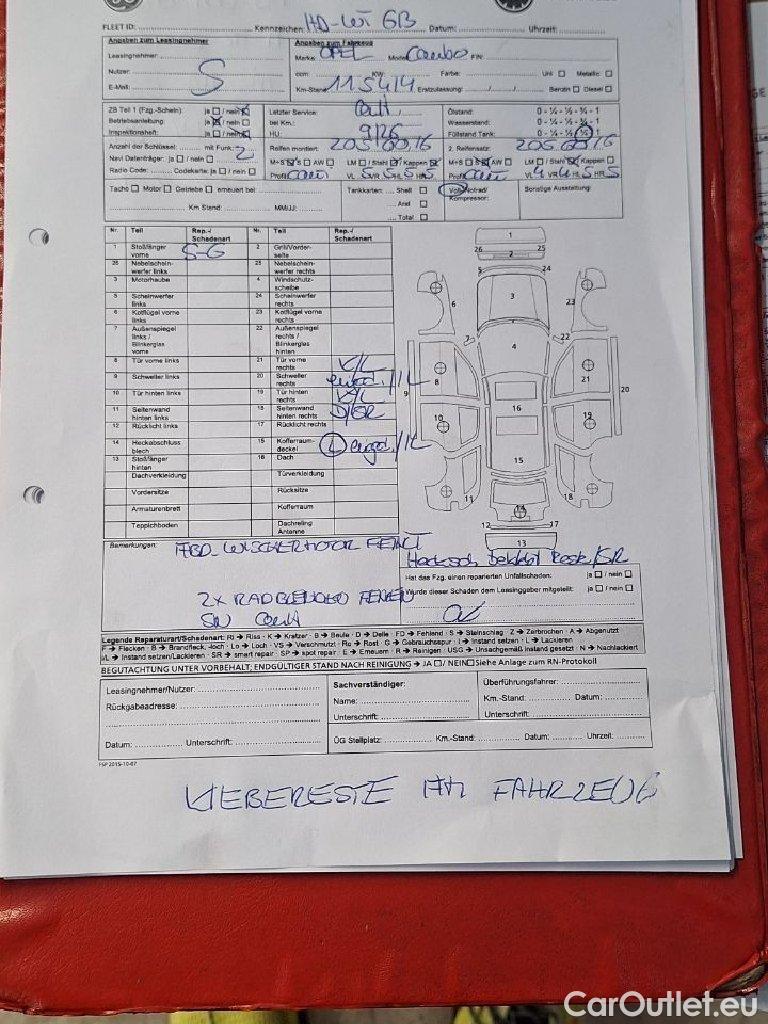 FLEET ID: Kennzeichen: Datum: Uhrzeit:
Angaben zum Leasingnehmer Angaben zum Fahrzeug
Leasingnehmer: Marke: OPEL Modell: Combo FIN:
Nutzer: S ccm: KW Farbe: Uni Metallic
E-Mail: Km-Stand: 115414 Erstzulassung: / / Benzin Diesel
ZB Teil 1 (Fzg.-Schein): ja / nein Letzter Service: Ölstand: 0 - ¼ - ½ - ¾ - 1
Betriebsanleitung: ja / nein bei Km.: Wasserstand: 0 - ¼ - ½ - ¾ - 1
Inspektionsheft: ja / nein HU: 9/26 Füllstand Tank: 0 - ¼ - ½ - ¾ - 1
Anzahl der Schlüssel: mit Funk: 2 Reifen montiert: 205/60/16 2. Reifensatz: 205/60/16
Navi Datenträger: ja / nein M+S S AW LM / Stahl / Kappen M+S S AW LM / Stahl / Kappen
Radio Code: Codekarte: ja / nein Profil VL 5 VR 5 HL 5 HR 5 Profil VL 4 VR 4 HL 5 HR 5
Tacho Motor Getriebe erneuert bei: Tankkarten: Shell Voll-/Notrad/ Sonstige Ausstattung:
Km Stand: MM/JJ: Aral Kompressor:
Total
Nr. Teil Rep.-/ Schadenart Nr. Teil Rep.-/ Schadenart
1 Stoßfänger vorne S-G 2 Grill/Vorderseite
26 Nebelscheinwerfer links 25 Nebelscheinwerfer rechts
3 Motorhaube 4 Windschutzscheibe
5 Scheinwerfer links 24 Scheinwerfer rechts
6 Kotflügel vorne links 23 Kotflügel vorne rechts
7 Außenspiegel links / Blinkerglas vorne 22 Außenspiegel rechts / Blinkerglas hinten
8 Tür vorne links 21 Tür vorne rechts K/L
9 Schweller links 20 Schweller rechts
10 Tür hinten links 19 Tür hinten rechts K/L
11 Seitenwand hinten links 18 Seitenwand hinten rechts D/SR
12 Rücklicht links 17 Rücklicht rechts
14 Heckabschlussblech 15 Kofferraumdeckel
13 Stoßfänger hinten 16 Dach
Dachverkleidung Türverkleidung
Vordersitze Rücksitze
Armaturenbrett Kofferraum
Teppichboden Dachreling/ Antenne
Bemerkungen: WISCHERMOTOR FEHLT
2X RADBLENDEN FEHLEN
Hat das Fzg. einen reparierten Unfallschaden: ja / nein
Wurde dieser Schaden dem Leasinggeber mitgeteilt: ja / nein
Legende Reparaturart/Schadenart: RI → Riss - K → Kratzer - B → Beule - D → Delle - FD → Fehlend - S → Steinschlag - Z → Zerbrochen - A → Abgenutzt
F → Flecken - IB → Brandfleck, -loch - Lo → Loch - VS → Verschmutzt - Ro → Rost - G → Gebrauchsspur - I → Instand setzen - L → Lackieren
I/L → Instand setzen/Lackieren - SR → smart repair - SP → spot repair - E → Erneuern - R → Reinigen - USG → Unsachgemäß instand gesetzt - N → Nachlackiert
BEGUTACHTUNG UNTER VORBEHALT; ENDGÜLTIGER STAND NACH REINIGUNG → JA / NEIN Siehe Anlage zum RN-Protokoll
Leasingnehmer/Nutzer: Sachverständiger: Überführungsfahrer:
Rückgabeadresse: Name: Km.-Stand: Datum:
Unterschrift: Unterschrift:
Datum: Unterschrift: ÖG Stellplatz: Km.-Stand: Datum: Uhrzeit:
FSP 2015-10-07
KLEBERESTE AM FAHRZEUG
CarOutlet.eu